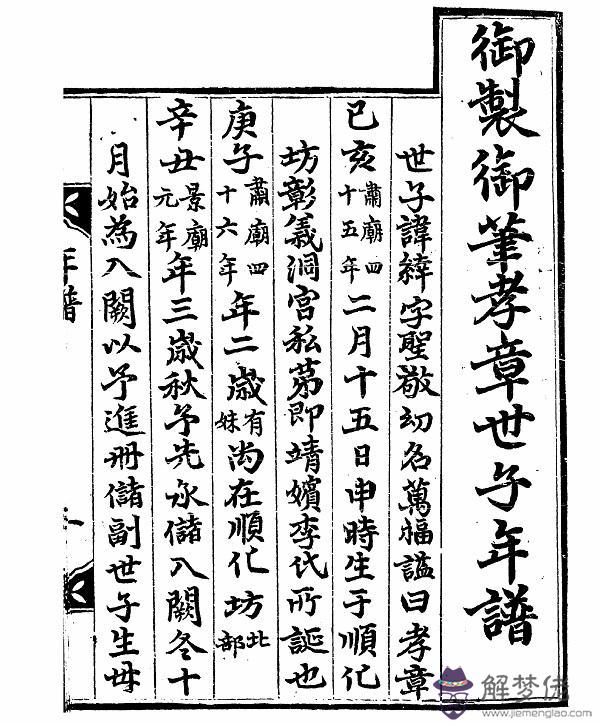 御製御筆孝章世子年譜
世子諱緈字聖敬幼名萬福諡曰孝章
己亥肅廟四十五年二月十五日申時生于順化
坊彰義洞宮私第即靖嬪李氏所誕也
庚子肅廟四十六年年二歲有妹尚在順化坊北部
辛丑景廟元年年三歲秋予先承儲入闕冬十
月始為入闕以予進冊儲副世子生母
年譜
一
解梦佬
www.jiemenglao.com